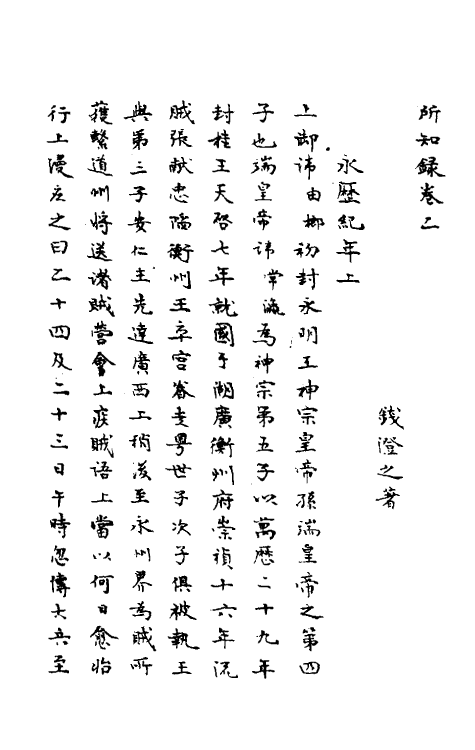 所知録卷二
錢澄之著
永歷紀年上
上御諱由榔初封永明王神宗皇帝孫端皇帝之第四
子也端皇帝諱常瀛為神宗第五子以萬歷二十九年
封桂王天啓七年就國于湖廣衡州府崇禎十六年流
賊張献忠陷衡州王率宫眷走粤世子次子俱被執王
與第三子安仁王先達廣西上稍後至永州界為賊所
獲繫道州将送諸賊營會上疾賊語上當以何日愈始
行上漫应之曰乙十四及二十三日午時忽傳大兵至